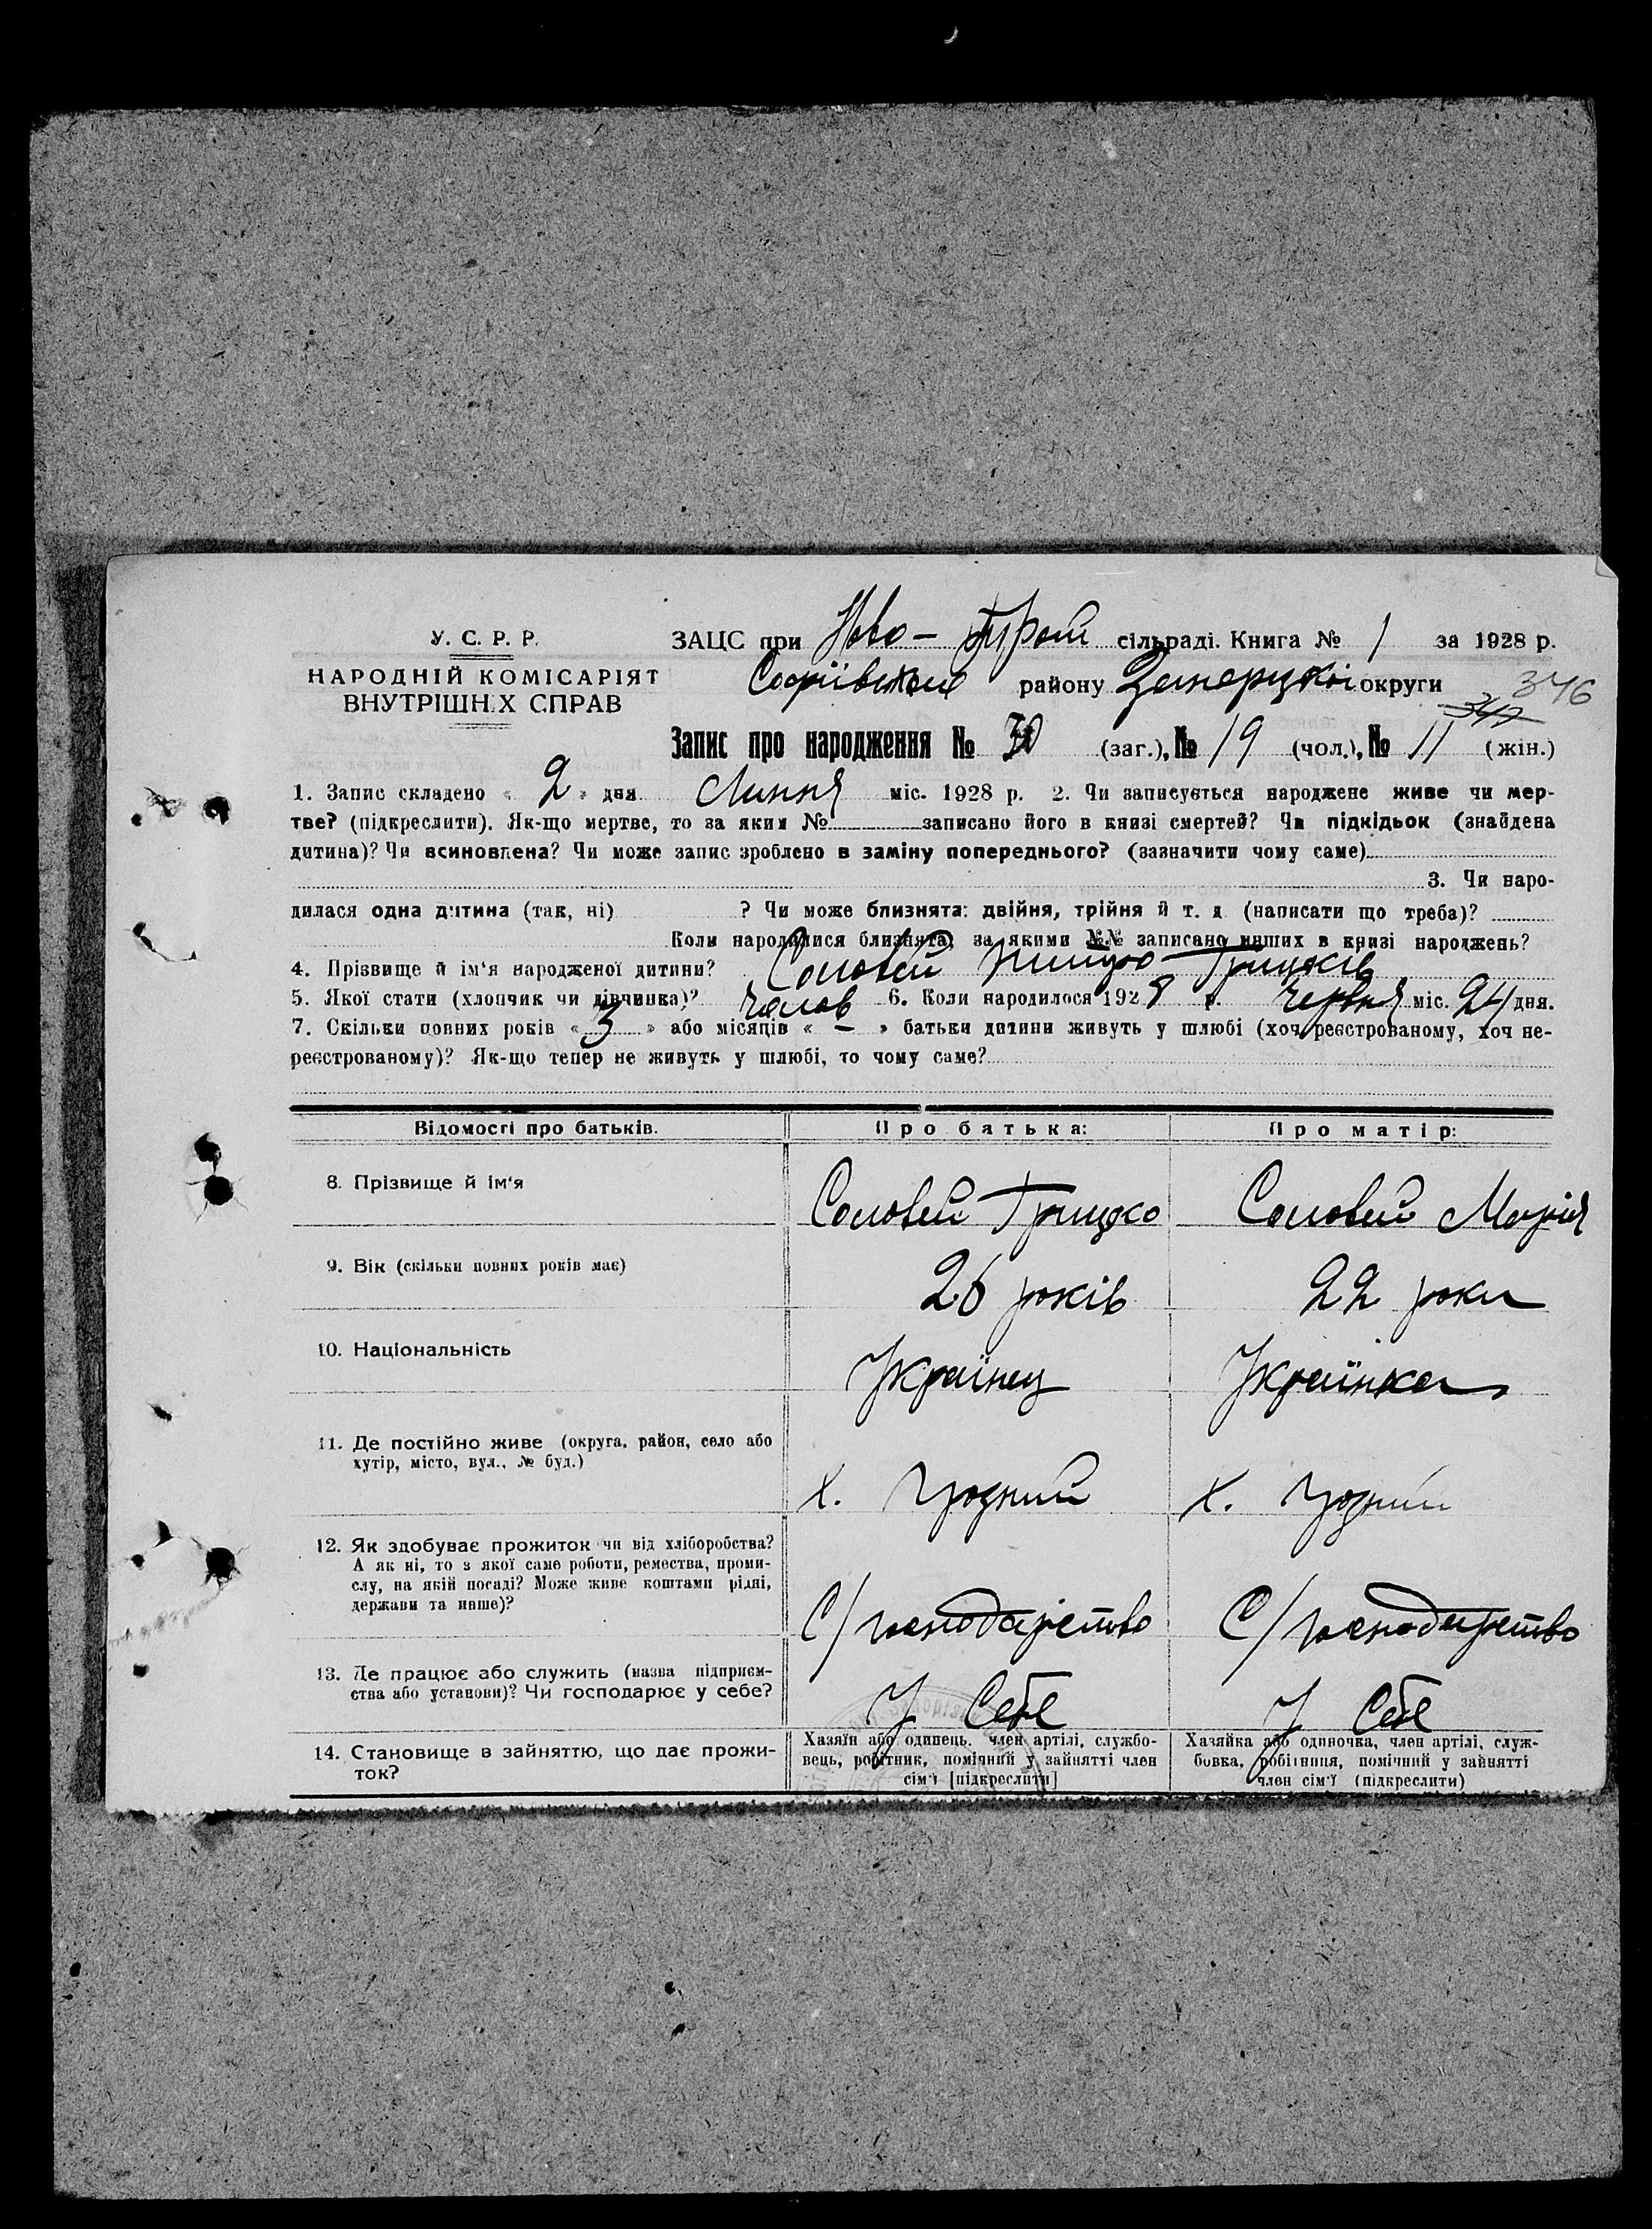 У. С. Р. Р.
НАРОДНІЙ КОМІСАРІЯТ
ВНУТРІШНІХ СПРАВ
ЗАЦС при Ново- сільраді. Книга № 1 за 1928 р.
району округи 346
Запис про народження № 30 (заг.), № 19 (чол.), № 11 (жін.)
1. Запис складено « 2 » дня Липня міс. 1928 р. 2. Чи записується народжене живе чи мер-
тве? (підкреслити). Як-що мертве, то за яким № записано його в книзі смертей? Чи підкідьок (знайдена
дитина)? Чи всиновлена? Чи може запис зроблено в заміну попереднього? (зазначити чому саме)
3. Чи наро-
дилася одна дитина (так, ні) ? Чи може близнята: двійня, трійня й т. д. (написати що треба)?
Коли народилися близнята, за якими №№ записано инших в книзі народжень?
4. Прізвище й ім'я народженої дитини? Соловей Грицьків
5. Якої стати (хлопчик чи дівчинка)? Чолов 6. Коли народилося 1928 р. Червня міс. 24 дня.
7. Скільки повних років « 3 » або місяців « – » батьки дитини живуть у шлюбі (хоч реєстрованому, хоч не-
реєстрованому)? Як-що тепер не живуть у шлюбі, то чому саме?
Відомості про батьків. Про батька: Про матір:
8. Прізвище й ім'я Соловей Грицко Соловей Марія
9. Вік (скільки повних років має) 26 років 22 роки
10. Національність Українец Українка
11. Де постійно живе (округа, район, село або
хутір, місто, вул., № буд.) х. х.
12. Як здобуває прожиток чи від хліборобства?
А як ні, то з якої саме роботи, ремества, проми-
слу, на якій посаді? Може живе коштами рідні,
держави та инше)? С/господарство С/господарство
13. Де працює або служить (назва підприєм-
ства або установи)? Чи господарює у себе? У Себе У Себе
14. Становище в зайняттю, що дає прожи-
ток?
Хазяїн або одинець, член артілі, службо-
вець, робітник, помічний у зайнятті член
сім'ї [підкреслити]
Хазяйка або одиночка, член артілі, служ-
бовка, робітниця, помічний у зайнятті
член сім'ї (підкреслити)